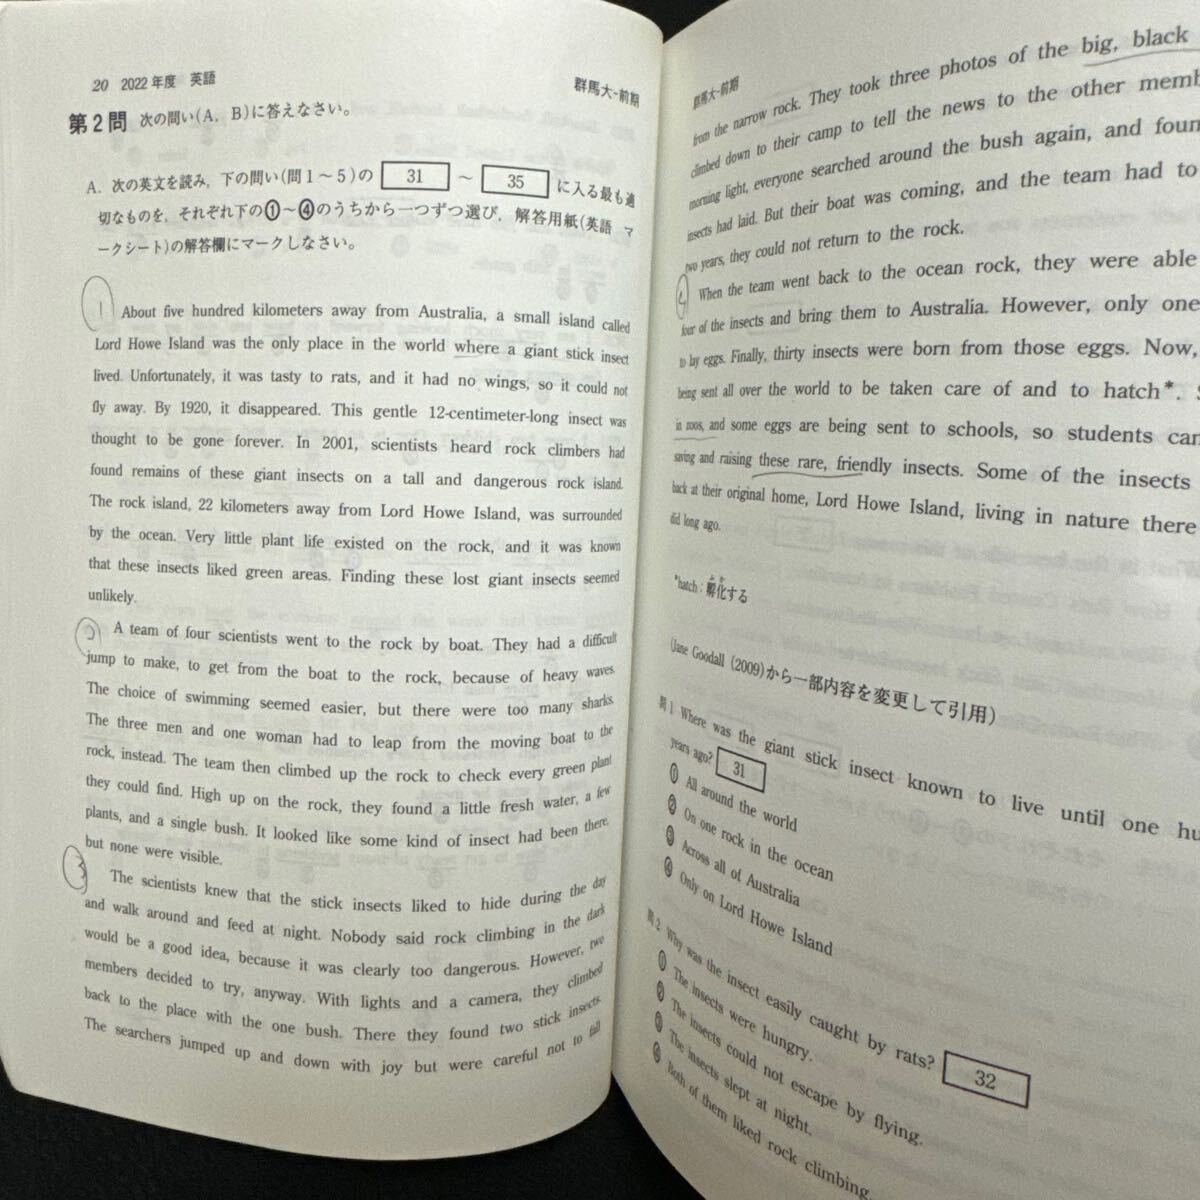 20 2022年度 英語
群馬大-前期
第2問 次の問い(A, B)に答えなさい。
A. 次の英文を読み，下の問い(問1～5)の 31 ～ 35 に入る最も適
切なものを，それぞれ下の①～④のうちから一つずつ選び，解答用紙(英語 マ
ークシート)の解答欄にマークしなさい。
1 About five hundred kilometers away from Australia, a small island called
Lord Howe Island was the only place in the world where a giant stick insect
lived. Unfortunately, it was tasty to rats, and it had no wings, so it could not
fly away. By 1920, it disappeared. This gentle 12-centimeter-long insect was
thought to be gone forever. In 2001, scientists heard rock climbers had
found remains of these giant insects on a tall and dangerous rock island.
The rock island, 22 kilometers away from Lord Howe Island, was surrounded
by the ocean. Very little plant life existed on the rock, and it was known
that these insects liked green areas. Finding these lost giant insects seemed
unlikely.
2 A team of four scientists went to the rock by boat. They had a difficult
jump to make, to get from the boat to the rock, because of heavy waves.
The choice of swimming seemed easier, but there were too many sharks.
The three men and one woman had to leap from the moving boat to the
rock, instead. The team then climbed up the rock to check every green plant
they could find. High up on the rock, they found a little fresh water, a few
plants, and a single bush. It looked like some kind of insect had been there,
but none were visible.
3 The scientists knew that the stick insects liked to hide during the day
and walk around and feed at night. Nobody said rock climbing in the dark
would be a good idea, because it was clearly too dangerous. However, two
members decided to try, anyway. With lights and a camera, they climbed
back to the place with the one bush. There they found two stick insects.
The searchers jumped up and down with joy but were careful not to fall
群馬大-前期
from the narrow rock. They took three photos of the big, black
climbed down to their camp to tell the news to the other memb
morning light, everyone searched around the bush again, and foun
insects had laid. But their boat was coming, and the team had to
two years, they could not return to the rock.
4 When the team went back to the ocean rock, they were able
four of the insects and bring them to Australia. However, only one
to lay eggs. Finally, thirty insects were born from those eggs. Now,
being sent all over the world to be taken care of and to hatch*.
in zoos, and some eggs are being sent to schools, so students can
saving and raising these rare, friendly insects. Some of the insects
back at their original home, Lord Howe Island, living in nature there
did long ago.
*hatch：孵化する
(Jane Goodall (2009)から一部内容を変更して引用)
問1 Where was the giant stick insect known to live until one hu
years ago? 31
① All around the world
② On one rock in the ocean
③ Across all of Australia
④ Only on Lord Howe Island
問2 Why was the insect easily caught by rats? 32
① The insects were hungry.
② The insects could not escape by flying.
③ The insects slept at night.
④ Both of them liked rock climbing.